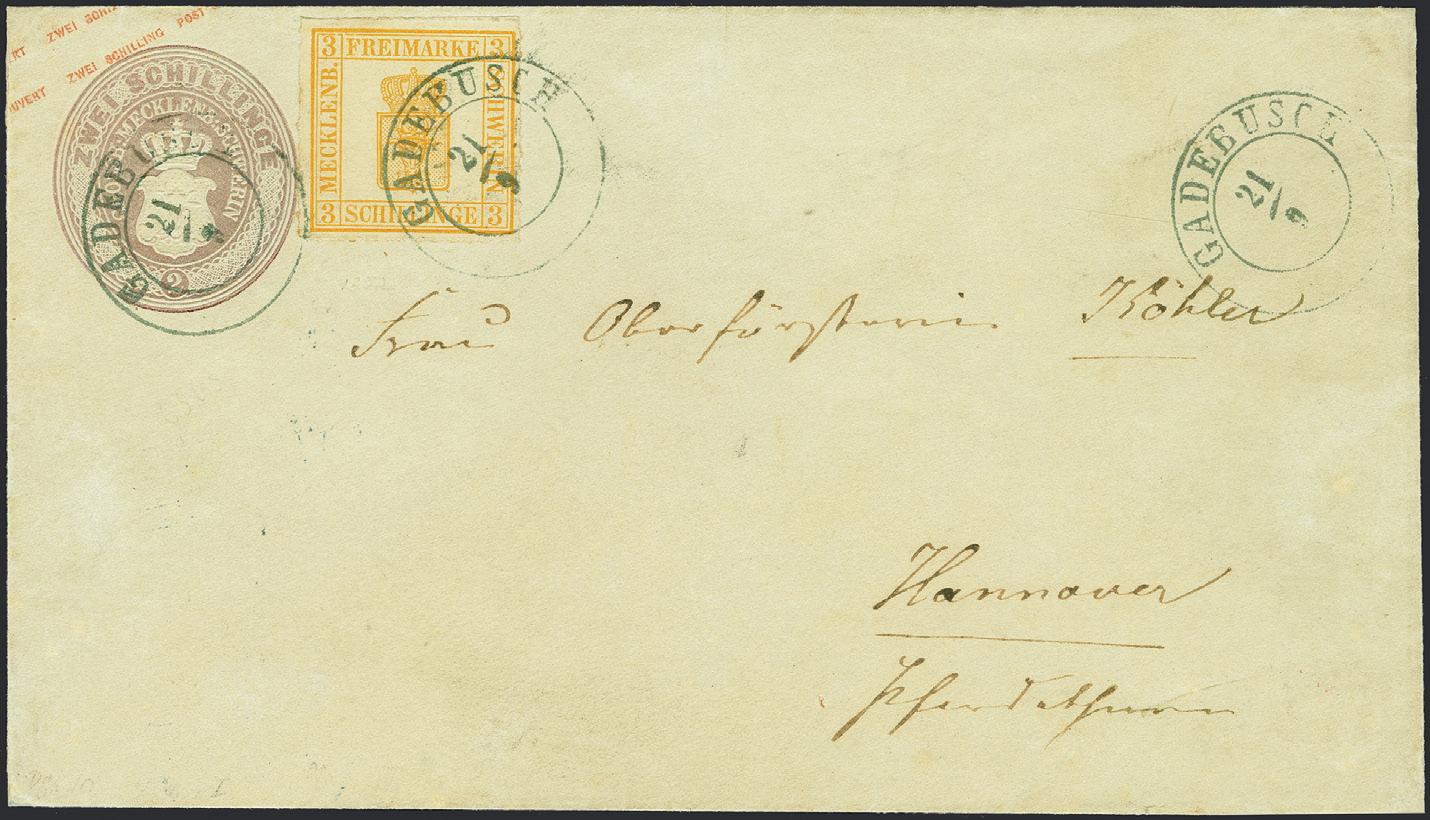 ERT ZWEI SCHI
OUVERT ZWEI SCHILLING POST
ZWEI SCHILLINGE
MECKLENB. SCHWERIN
2
3 FREIMARKE 3
MECKLENB.
SCHWERIN
3 SCHILLINGE 3
GADEBUSCH
21/9
GADEBUSCH
21/9
GADEBUSCH
21/9
Frau Oberförsterin Köhler
Hannover